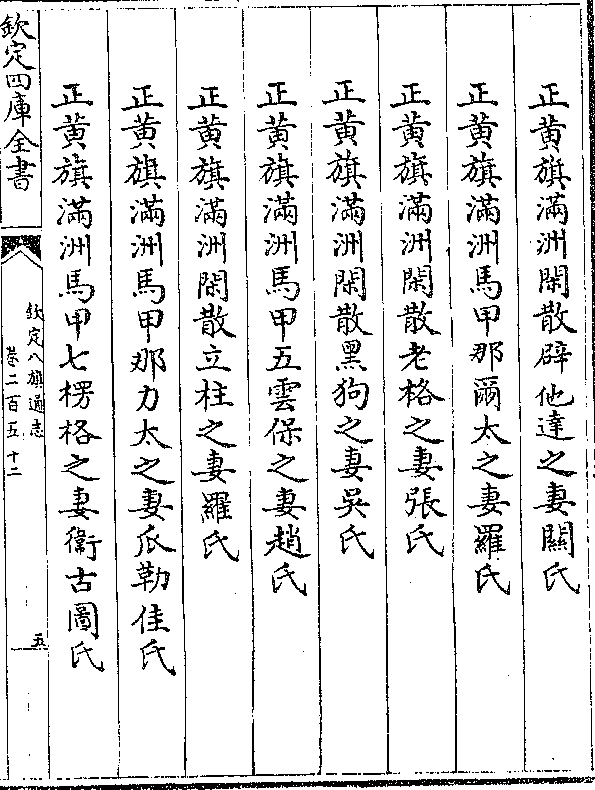 正黄旗滿洲閑散辟他達之妻關氏
正黄旗滿洲馬甲那爾太之妻羅氏
正黄旗滿洲閑散老格之妻張氏
正黄旗滿洲閑散黑狗之妻吳氏
正黄旗滿洲馬甲五雲保之妻趙氏
正黄旗滿洲閑散立柱之妻羅氏
正黄旗滿洲馬甲那力太之妻瓜勒佳氏
正黄旗滿洲馬甲七楞格之妻衛古圖氏
欽定四庫全書
欽定八旗通志
卷二百五十二
五